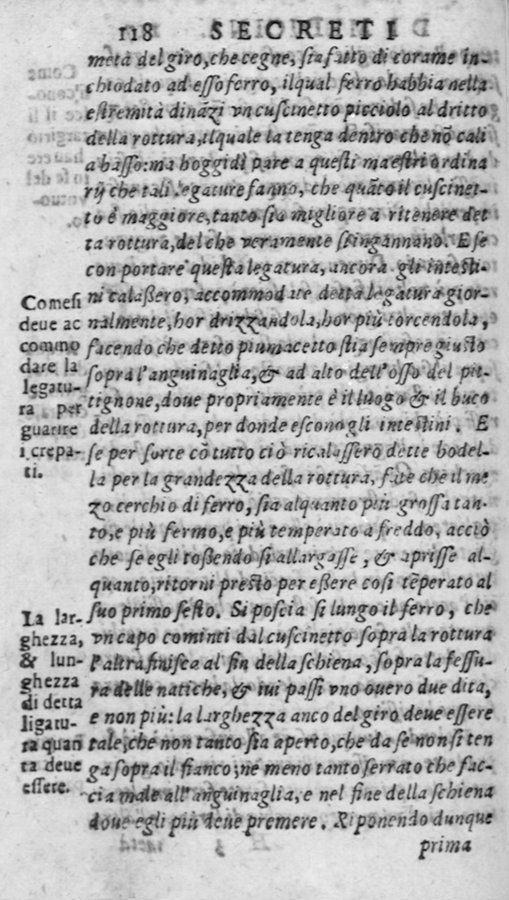 118 SECRETI
metà del giro, che cegne, sia fatto di corame in-
chiodato ad esso ferro, ilqual ferro habbia nella
estremità dinãzi vn cuscinetto picciolo al dritto
della rottura, ilquale la tenga dentro che nõ cali
a basso: ma hoggidì pare a questi maestri ordina
rij che tali legature fanno, che quãto il cuscinet-
to è maggiore, tanto sia migliore a ritenere det
ta rottura, del che veramente s'ingannano. E se
con portare questa legatura, ancora gli intesti-
ni calassero, accommodate detta legatura gior-
nalmente, hor drizzandola, hor più torcendola,
facendo che detto piumacetto stia sempre giusto
sopra l'anguinaglia, & ad alto dell'osso del pet-
tignone, doue propriamente è il luogo & il buco
della rottura, per donde escono gli intestini. E
se per sorte cõ tutto ciò ricalassero dette bodel-
la per la grandezza della rottura, fate che il me
zo cerchio di ferro, sia alquanto più grossa tan-
to, e più fermo, e più temperato a freddo, acciò
che se egli tossendo si allargasse, & aprisse al-
quanto, ritorni presto per essere così tẽperato al
suo primo sesto. Si poscia sì lungo il ferro, che
vn capo cominci dal cuscinetto sopra la rottura
l'altra finisca al fin della schiena, sopra la fessu-
ra delle natiche, & iui passi vno ouero due dita,
e non più: la larghezza anco del giro deue essere
tale, che non tanto sia aperto, che da se non si ten
ga sopra il fianco; ne meno tanto serrato che fac-
cia male all'anguinaglia, e nel fine della schiena
doue egli più deue premere. Riponendo dunque
prima
Come si
deue ac
commo
dare la
legatu-
ra per
guarire
i crepa-
ti.
La lar-
ghezza,
& lun-
ghezza
di detta
ligatu-
ra quan
ta deue
essere.